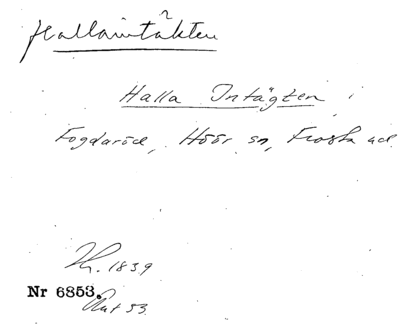 Hallaintäkten
Halla Intägten i
Fogdaröd, Höör sn, Frosta hd
1839
Nr 6853.
53